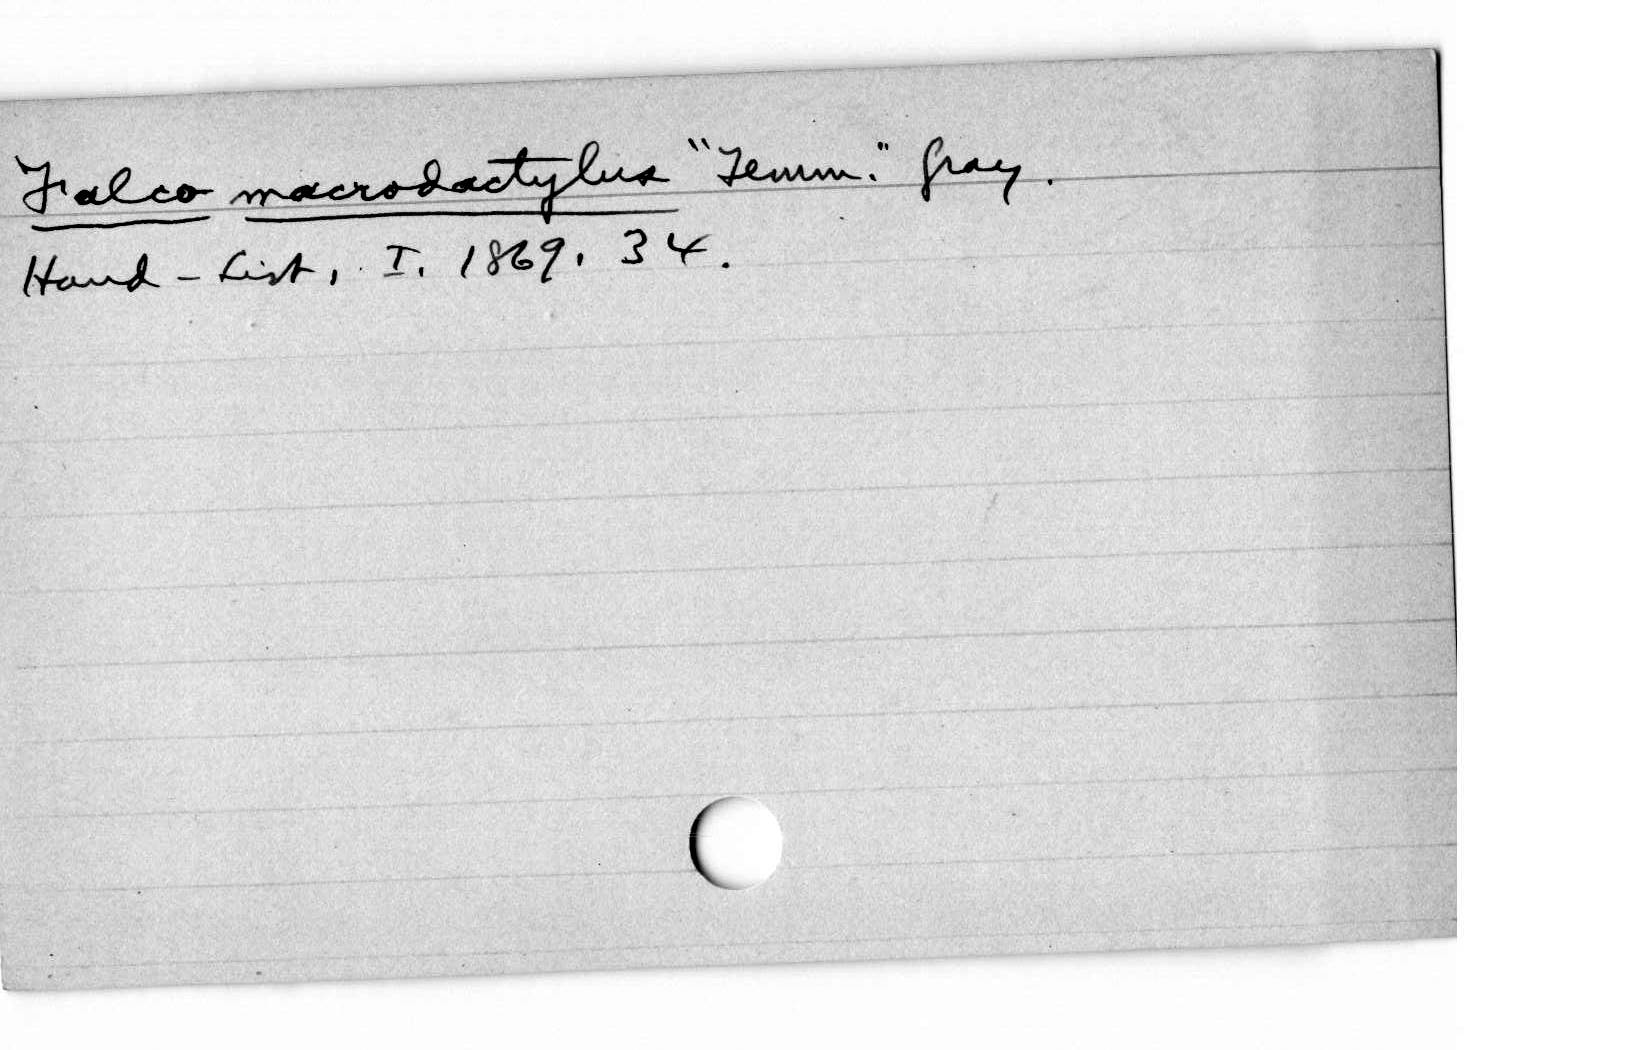 Falco macrodactylus "Temm." Gray.
Hand-List, I. 1869. 34.